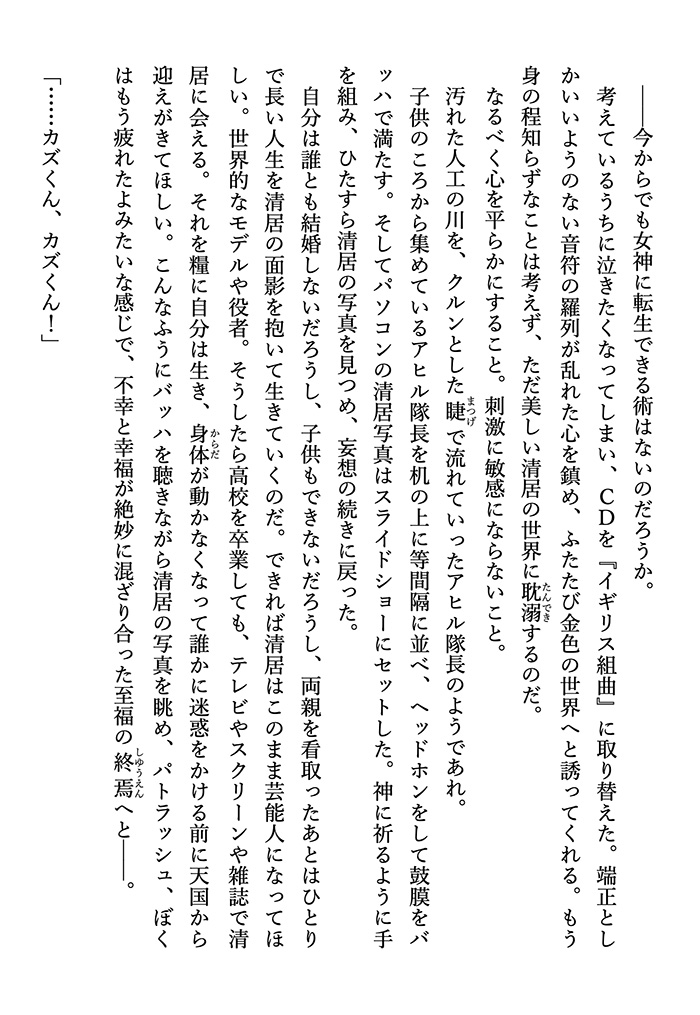 ――今からでも女神に転生できる術はないのだろうか。
考えているうちに泣きたくなってしまい、ＣＤを『イギリス組曲』に取り替えた。端正とし
かいいようのない音符の羅列が乱れた心を鎮め、ふたたび金色の世界へと誘ってくれる。もう
身の程知らずなことは考えず、ただ美しい清居の世界に耽溺するのだ。
なるべく心を平らかにすること。刺激に敏感にならないこと。
汚れた人工の川を、クルンとした睫で流れていったアヒル隊長のようであれ。
子供のころから集めているアヒル隊長を机の上に等間隔に並べ、ヘッドホンをして鼓膜をバ
ッハで満たす。そしてパソコンの清居写真はスライドショーにセットした。神に祈るように手
を組み、ひたすら清居の写真を見つめ、妄想の続きに戻った。
自分は誰とも結婚しないだろうし、子供もできないだろうし、両親を看取ったあとはひとり
で長い人生を清居の面影を抱いて生きていくのだ。できれば清居はこのまま芸能人になってほ
しい。世界的なモデルや役者。そうしたら高校を卒業しても、テレビやスクリーンや雑誌で清
居に会える。それを糧に自分は生き、身体が動かなくなって誰かに迷惑をかける前に天国から
迎えがきてほしい。こんなふうにバッハを聴きながら清居の写真を眺め、パトラッシュ、ぼく
はもう疲れたよみたいな感じで、不幸と幸福が絶妙に混ざり合った至福の終焉へと――。
「……カズくん、カズくん！」